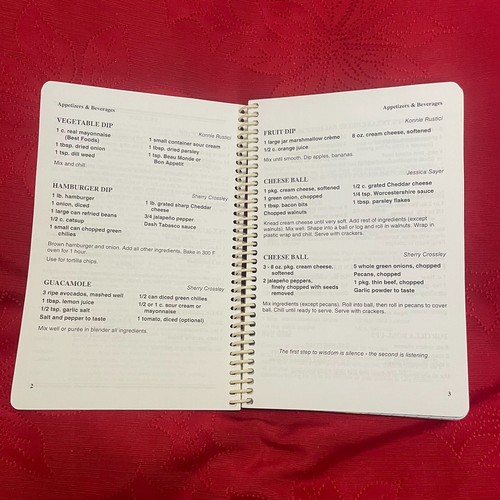 Appetizers & Beverages
VEGETABLE DIP
Konnie Rustici
1 c. real mayonnaise
(Best Foods)
1 tbsp. dried onion
1 tsp. dill weed
1 small container sour cream
1 tbsp. dried parsley
1 tsp. Beau Monde or
Bon Appetit
Mix and chill.
HAMBURGER DIP
Sherry Crossley
1 lb. hamburger
1 onion, diced
1 large can refried beans
1/2 c. catsup
1 small can chopped green
chilies
1 lb. grated sharp Cheddar
cheese
3/4 jalapeño pepper
Dash Tabasco sauce
Brown hamburger and onion. Add all other ingredients. Bake in 300 F
oven for 1 hour.
Use for tortilla chips.
GUACAMOLE
Sherry Crossley
3 ripe avocados, mashed well
1 tbsp. lemon juice
1/2 tsp. garlic salt
Salt and pepper to taste
1/2 can diced green chilies
1/2 or 1 c. sour cream or
mayonnaise
1 tomato, diced (optional)
Mix well or purée in blender all ingredients.
2
Appetizers & Beverages
Konnie Rustici
FRUIT DIP
1 large jar marshmallow crème
1/2 c. orange juice
8 oz. cream cheese, softened
Mix until smooth. Dip apples, bananas.
Jessica Sayer
CHEESE BALL
1 pkg. cream cheese, softened
1 green onion, chopped
1 tbsp. bacon bits
Chopped walnuts
1/2 c. grated Cheddar cheese
1/4 tsp. Worcestershire sauce
1 tbsp. parsley flakes
Knead cream cheese until very soft. Add rest of ingredients (except
walnuts). Mix well. Shape into a ball or log and roll in walnuts. Wrap in
plastic wrap and chill. Serve with crackers.
CHEESE BALL
Sherry Crossley
3 - 8 oz. pkg. cream cheese,
softened
2 jalapeño peppers,
finely chopped with seeds
removed
5 whole green onions, chopped
Pecans, chopped
1 pkg. thin beef, chopped
Garlic powder to taste
Mix ingredients (except pecans). Roll into ball, then roll in pecans to cover
ball. Chill until ready to serve. Serve with crackers.
The first step to wisdom is silence - the second is listening.
3